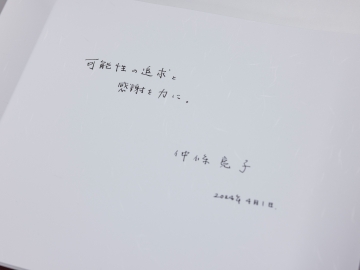 可能性の追求と
感謝を力に。
仲條亮子
2024年4月1日.